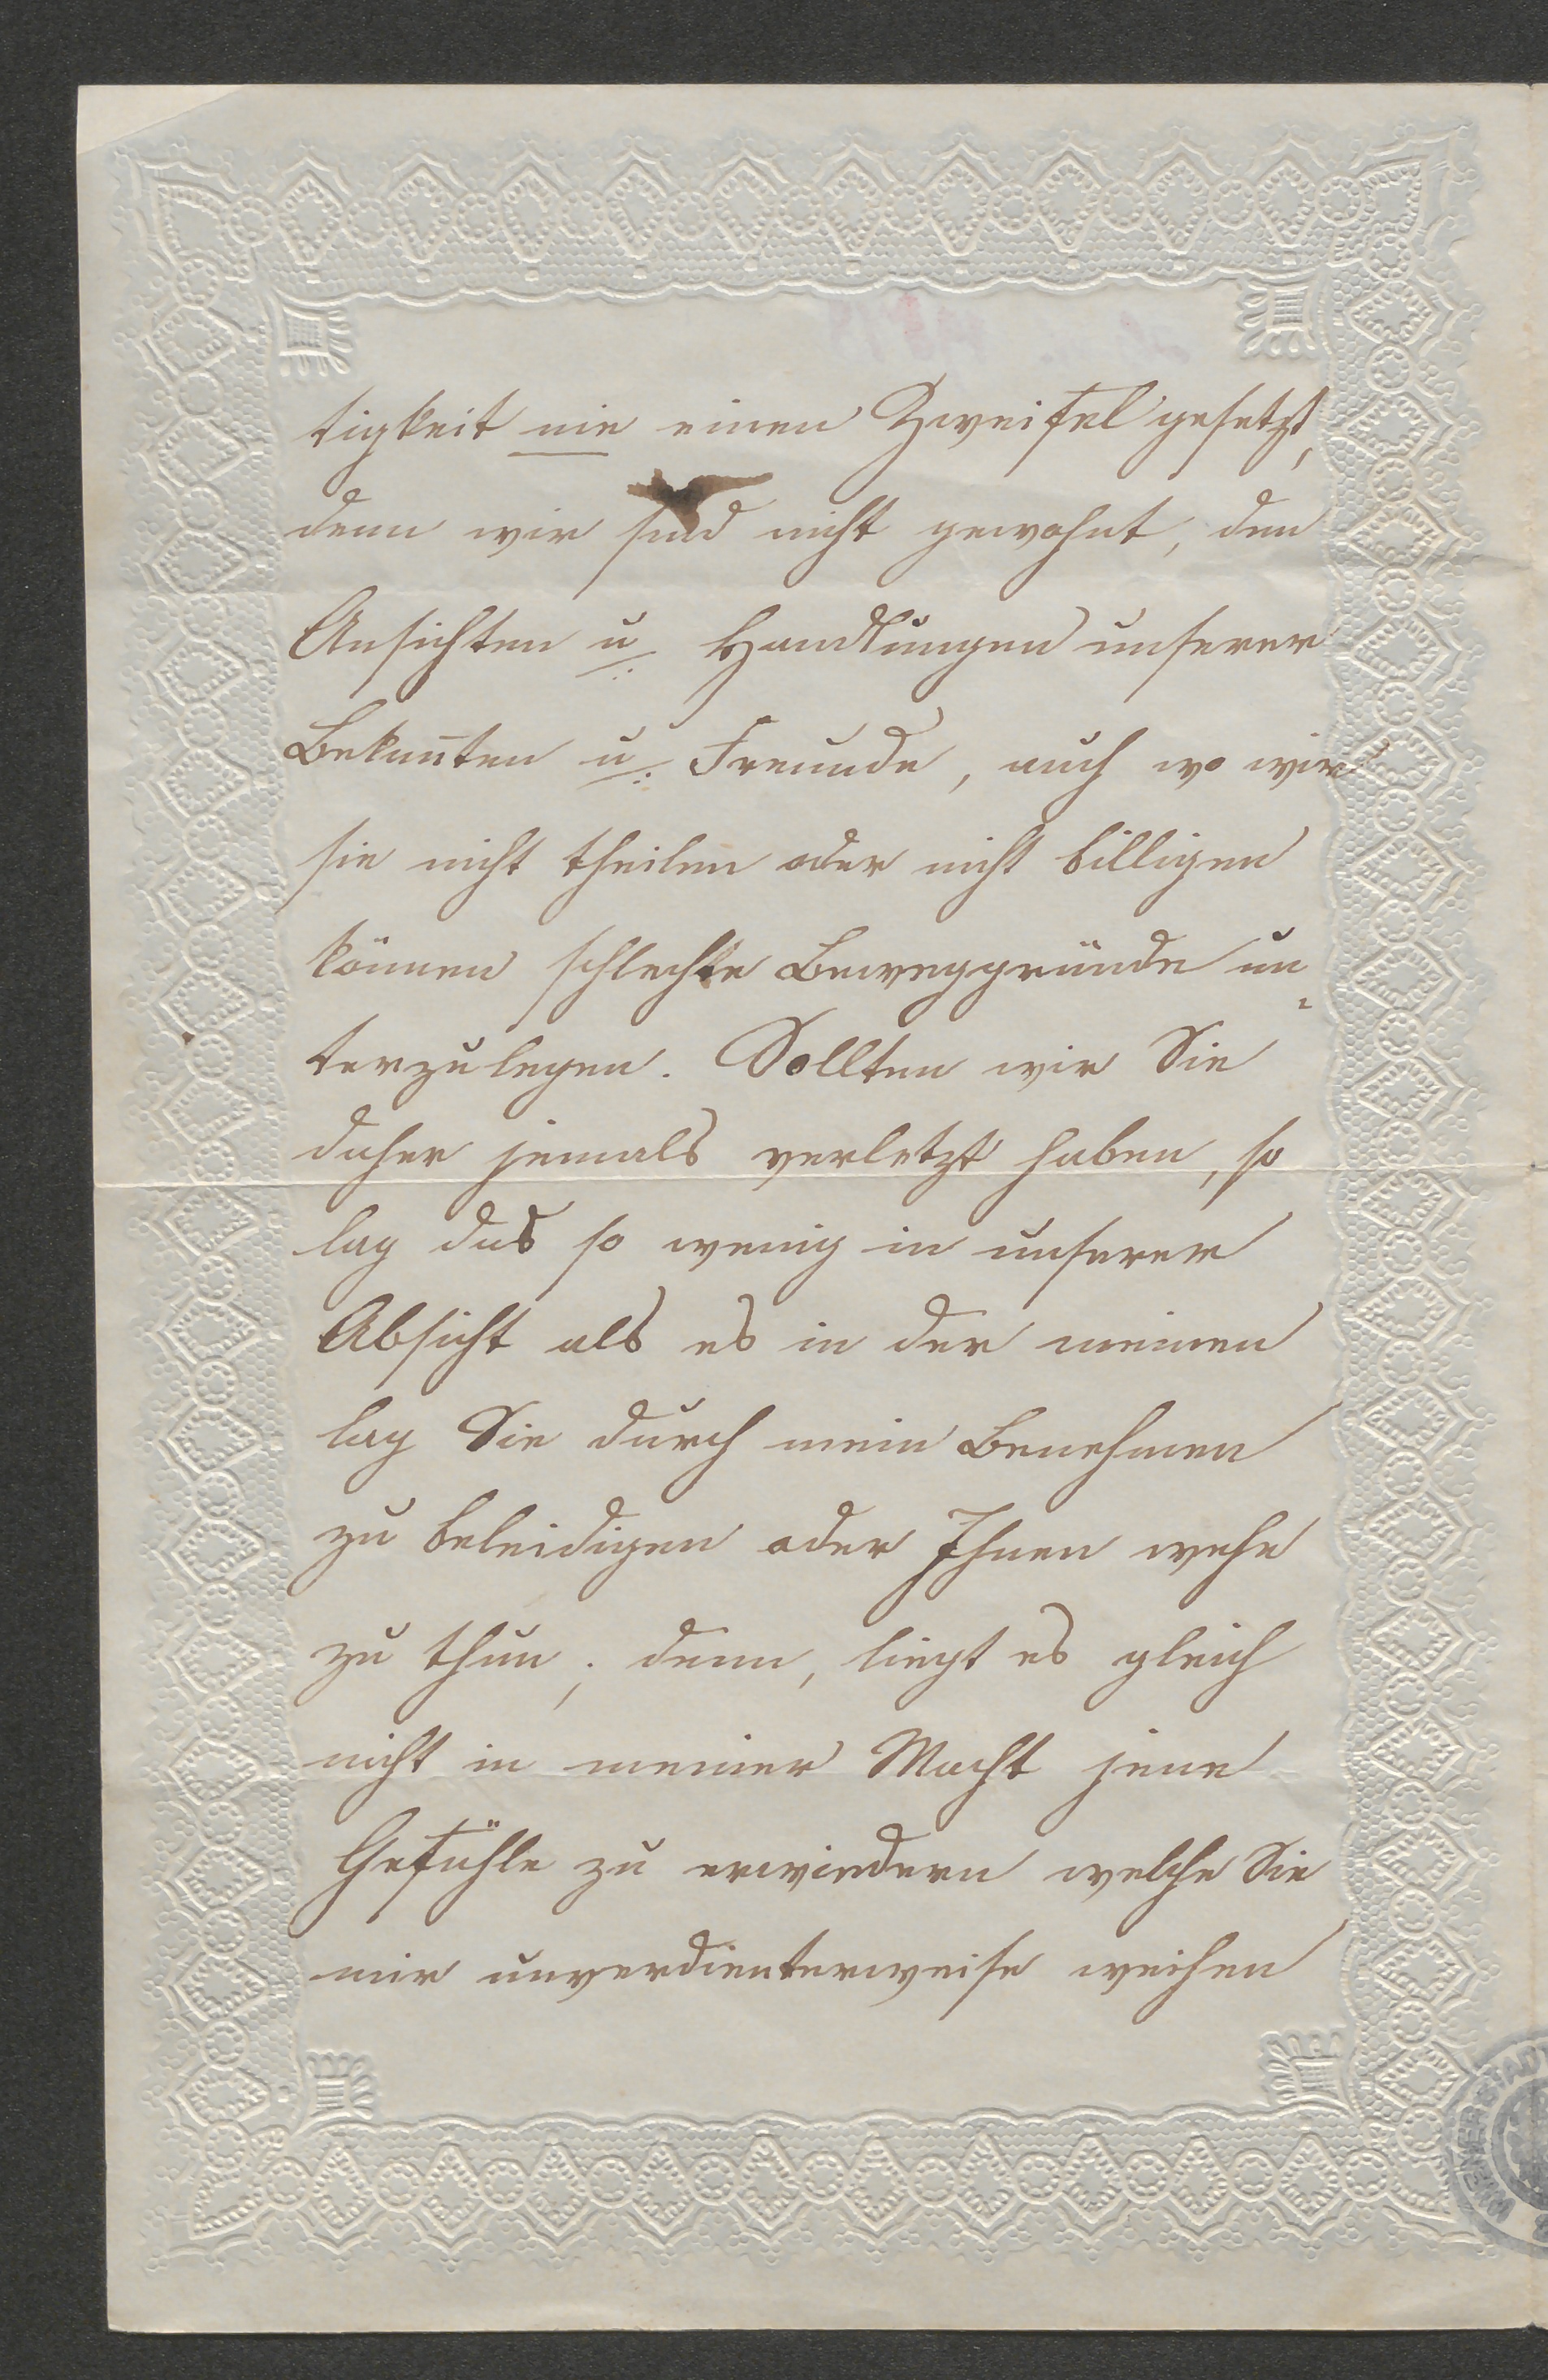 tigkeit nie einen Zweifel gesetzt,
denn wir sind nicht gewohnt, den
Ansichten u. Handlungen unserer
Bekan̄ten u. Freunde, auch wo wir
sie nicht theilen oder nicht billigen
können schlechte Beweggründe un-
terzulegen. Sollten wir Sie
daher jemals verletzt haben, so
lag das so wenig in unserer
Absicht als es in der meinen
lag Sie durch mein Benehmen
zu beleidigen oder Ihnen wehe
zu thun; denn, liegt es gleich
nicht in meiner Macht jene
Gefühle zu erwiedern welche Sie
mir unverdienterweise weihen
WIENER STADT